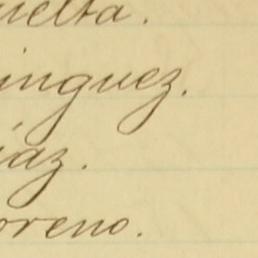 uelta.
inguez.
íaz.
oreno.